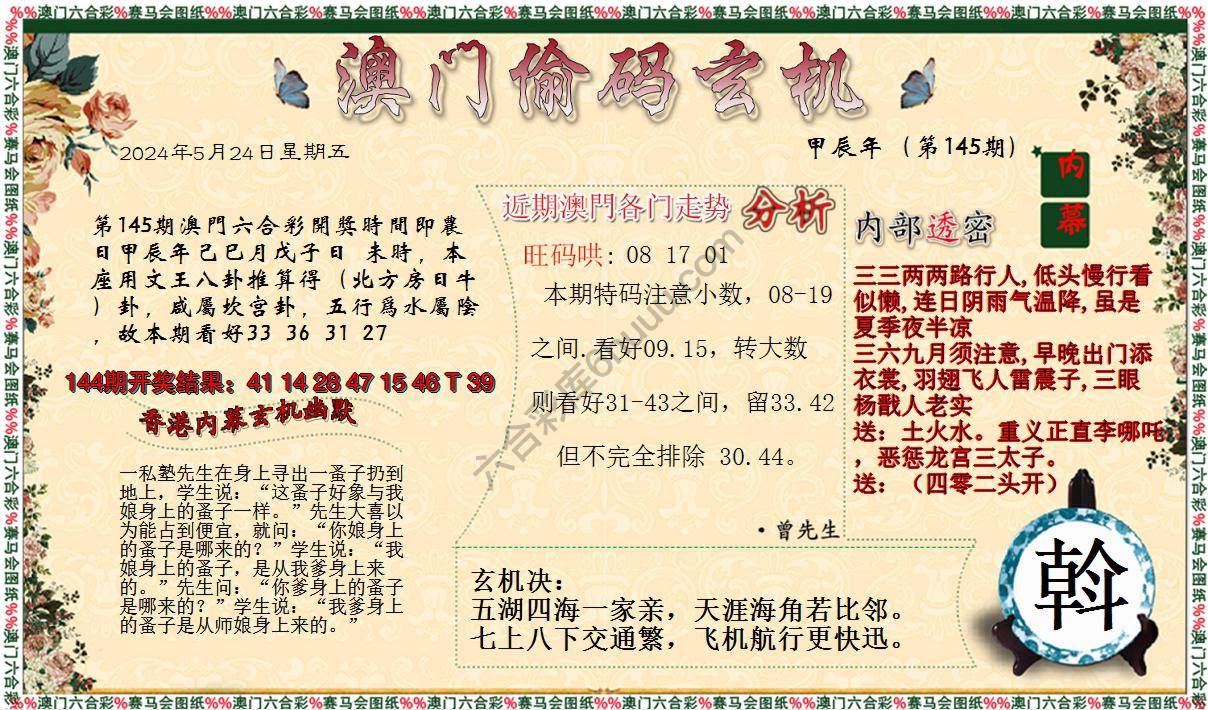 %%澳门六合彩%赛马会图纸%%澳门六合彩%赛马会图纸%%澳门六合彩%赛马会图纸%%澳门六合彩%赛马会图纸%%澳门六合彩%赛马会图纸%%澳门六合彩%赛马会图纸%%
澳门偷码玄机
2024年5月24日星期五
甲辰年（第145期）
第145期澳門六合彩開獎時間即農
日甲辰年己巳月戊子日 未時，本
座用文王八卦推算得（北方房日牛
）卦，咸屬坎宫卦，五行爲水屬陰
，故本期看好33 36 31 27
144期开奖结果：41 14 28 47 15 46 T 39
香港内幕玄机幽默
一私塾先生在身上寻出一蚤子扔到
地上，学生说：“这蚤子好象与我
娘身上的蚤子一样。”先生大喜以
为能占到便宜，就问：“你娘身上
的蚤子是哪来的？”学生说：“我
娘身上的蚤子，是从我爹身上来
的。”先生问：“你爹身上的蚤子
是哪来的？”学生说：“我爹身上
的蚤子是从师娘身上来的。”
近期澳門各门走势 分析
旺码哄: 08 17 01
本期特码注意小数，08-19
之间.看好09.15，转大数
则看好31-43之间，留33.42
但不完全排除 30.44。
·曾先生
内幕
内部透密
三三两两路行人,低头慢行看
似懒,连日阴雨气温降,虽是
夏季夜半凉
三六九月须注意,早晚出门添
衣裳,羽翅飞人雷震子,三眼
杨戬人老实
送：土火水。重义正直李哪吒
，恶惩龙宫三太子。
送：（四零二头开）
玄机决：
五湖四海一家亲，天涯海角若比邻。
七上八下交通繁，飞机航行更快迅。
斡